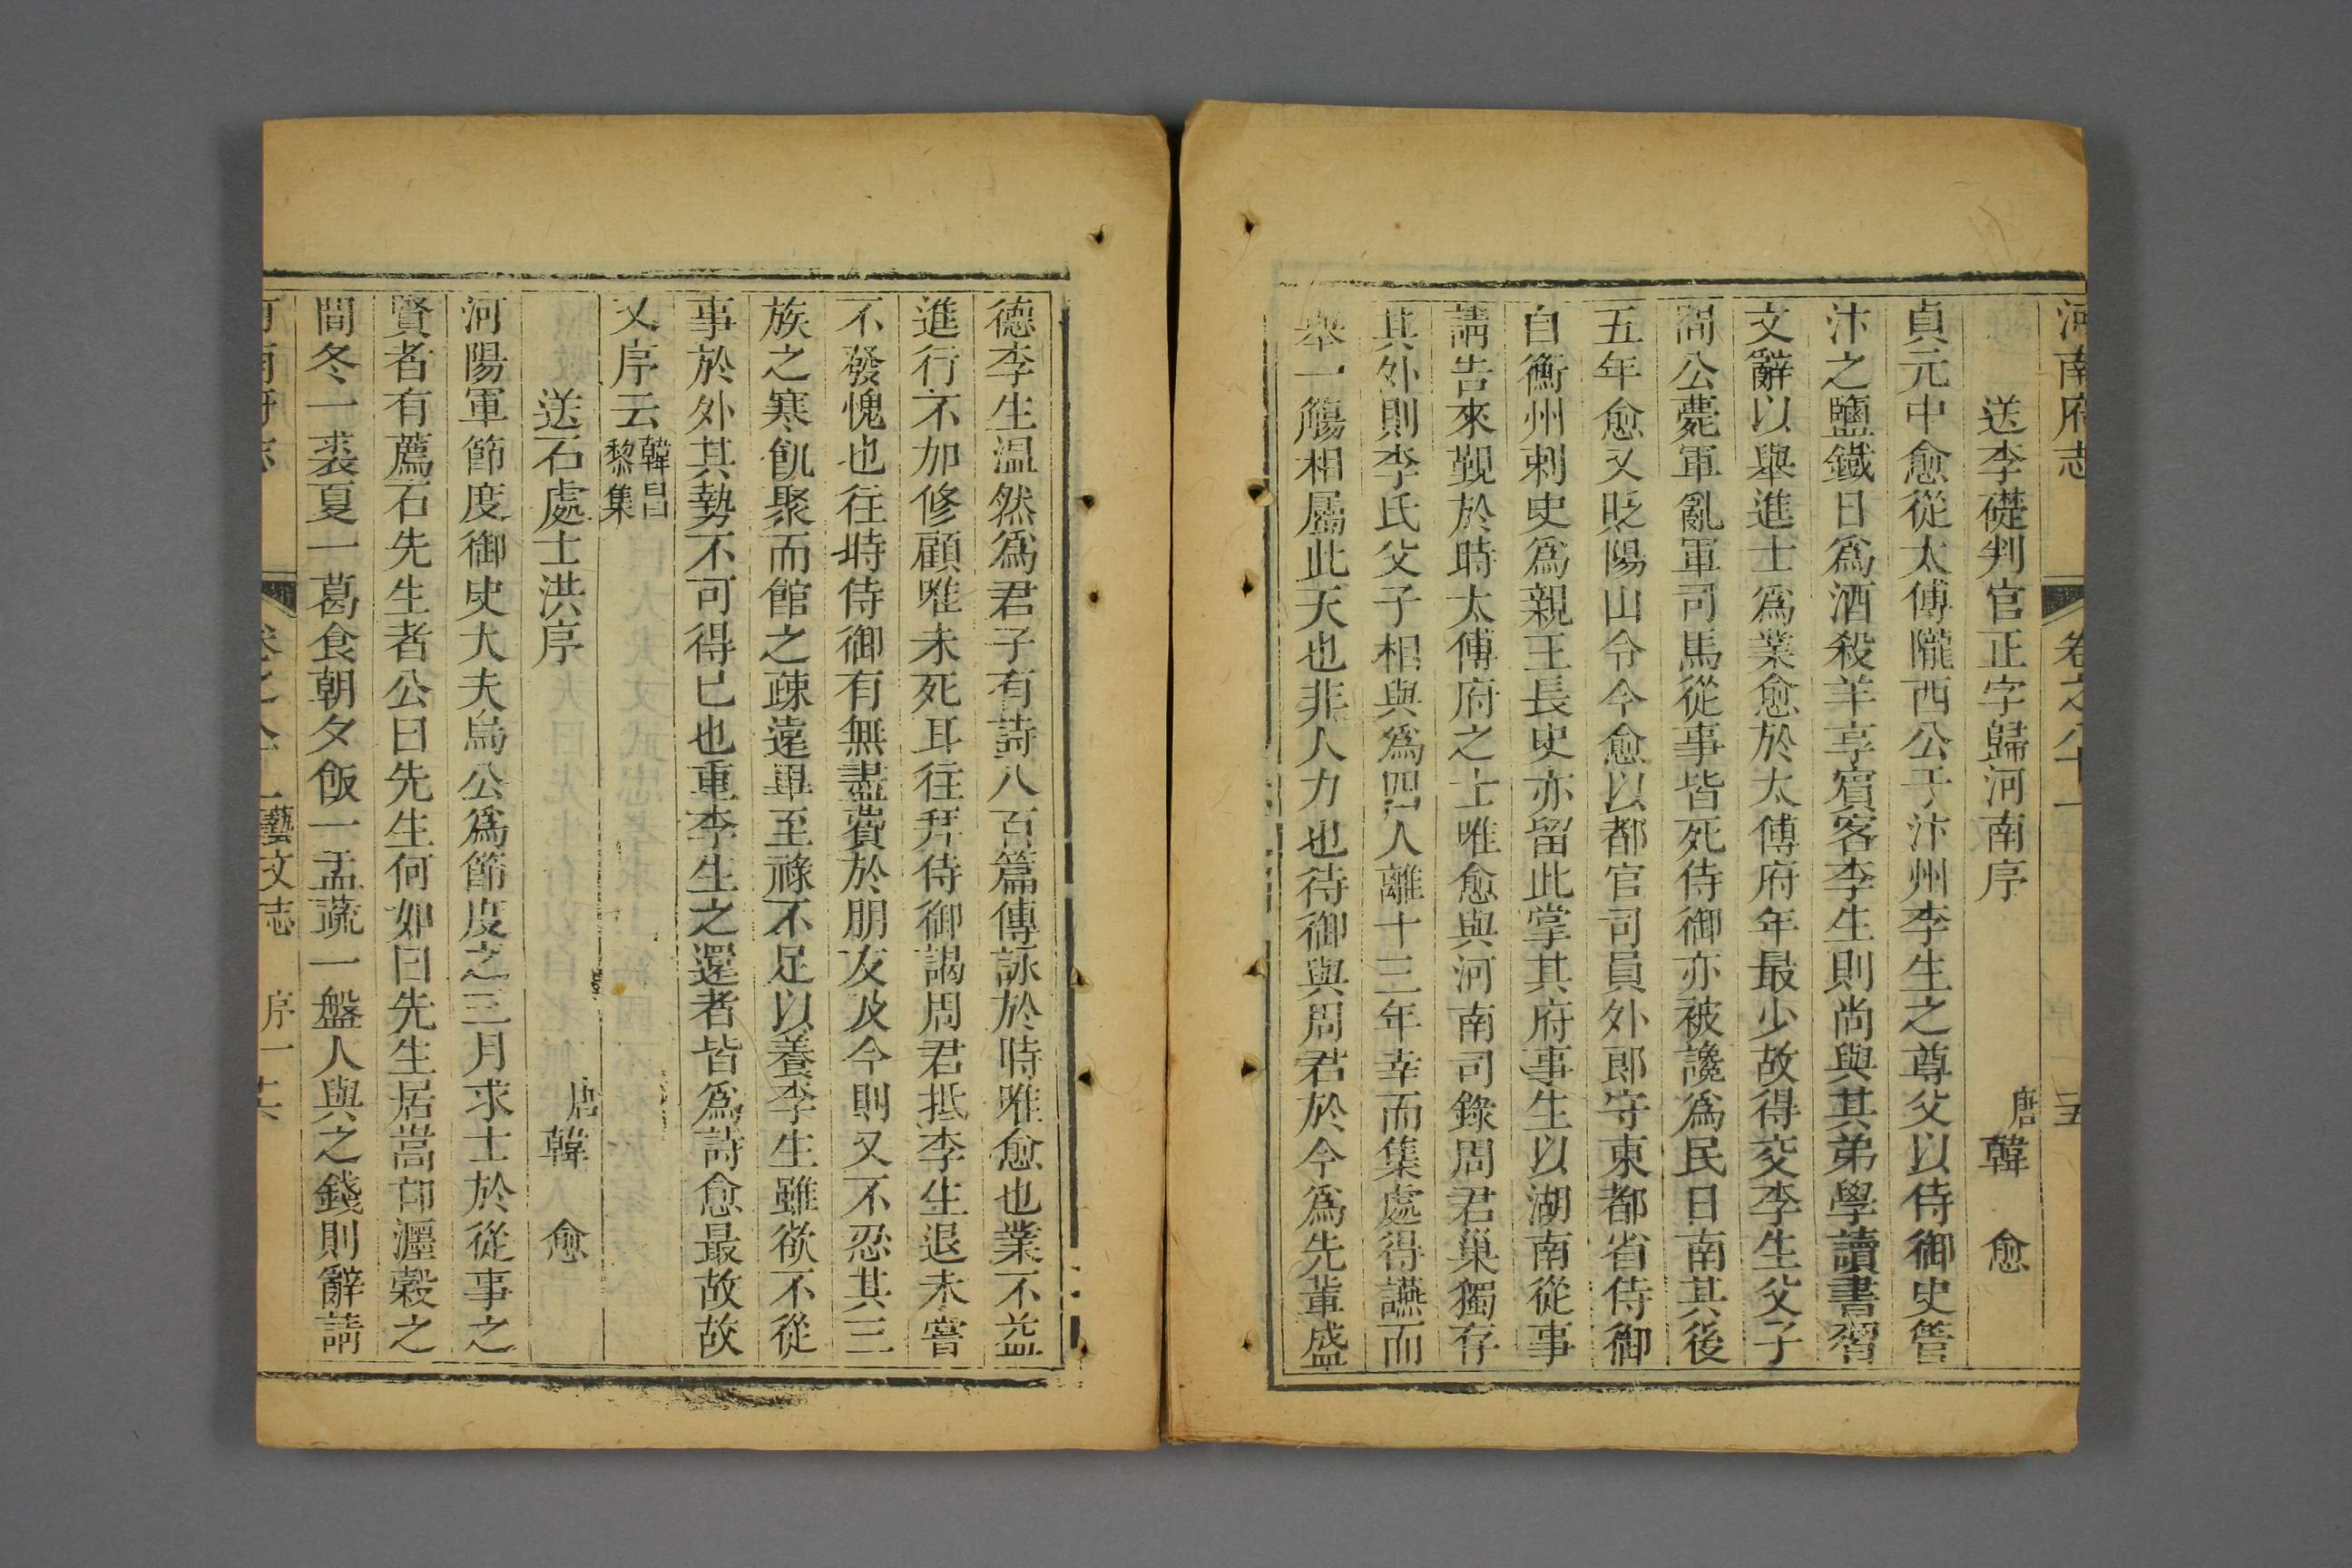 河南府志 卷之八十一 五
送李礎判官正字歸河南序 唐韓愈
貞元中愈從太傅隴西公于汴州李生之尊父以侍御史管
汴之鹽鐵日爲酒殺羊享賓客李生則尚與其弟學讀書習
文辭以舉進士爲業愈於太傅府年最少故得交李生父子
間公薨軍亂軍司馬從事皆死侍御亦被讒爲民日南其後
五年愈又貶陽山令今愈以都官司員外郎守東都省侍御
自衡州刺史爲親王長史亦留此掌其府事生以湖南從事
請告來覲於時太傅府之士唯愈與河南司錄周君巢獨存
其外則李氏父子相與爲四人離十三年幸而集處得讌而
舉一觴相屬此天也非人力也待御與周君於今爲先輩盛
德李生温然爲君子有詩八百篇傳詠於時唯愈也業不益
進行不加修顧唯未死耳往拜侍御謁周君抵李生退未嘗
不發愧也往時侍御有無盡費於朋友及今則又不忍其三
族之寒飢聚而館之疎遠畢至祿不足以養李生雖欲不從
事於外其勢不可得已也重李生之還者皆爲詩愈最故故
又序云韓昌黎集
送石處士洪序 唐韓愈
河陽軍節度御史大夫烏公爲節度之三月求士於從事之
賢者有薦石先生者公曰先生何如曰先生居嵩邙瀍穀之
間冬一裘夏一葛食朝夕飯一盂蔬一盤人與之錢則辭請
河南府志 卷之八十一藝文志 序一 六